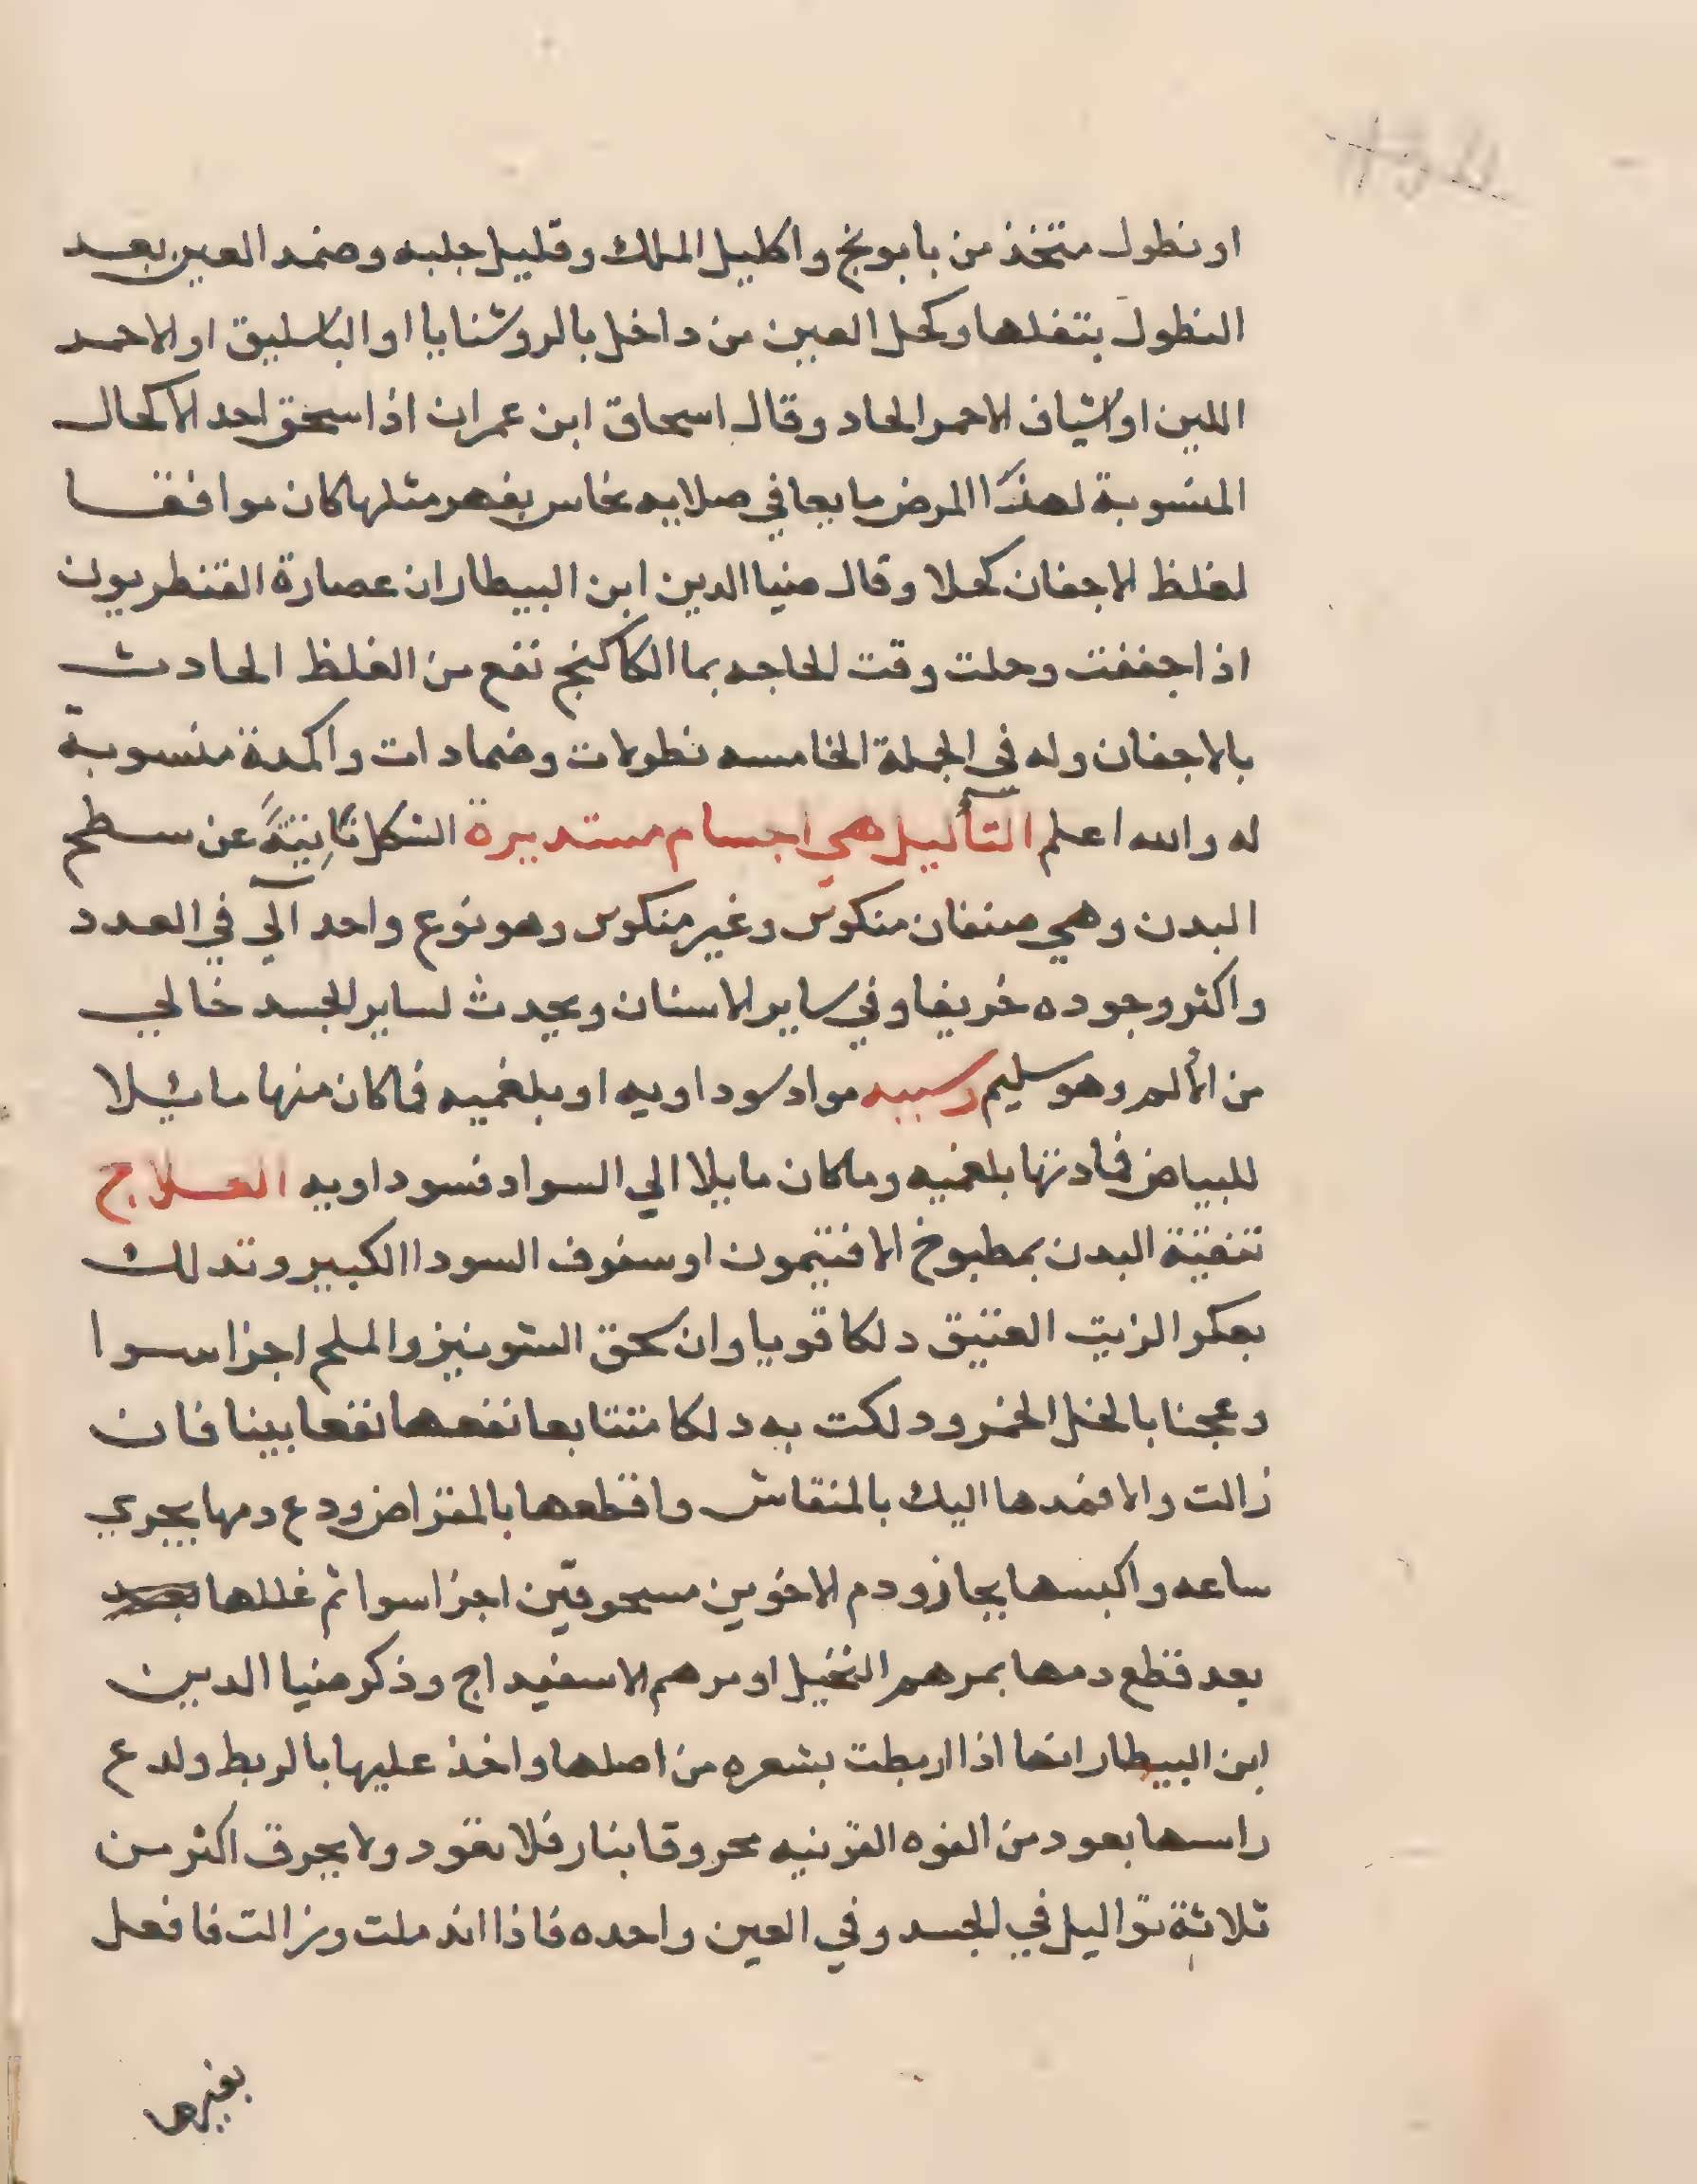 او نطول متخذ من بابونج واكليل الملك وقليل حلبه وضمد العين بعد
النطول بتفلها وكحل العين من داخل بالروشنايا او الباسليق او الاحمر
اللين او اشياف الاحمر الحاد وقال اسحاق ابن عمران اذا سحق احد الاكحال
المنسوبة لهذا المرض مايعا في صلايه نحاس بفهر مثلها كان موافقا
لغلظ الاجفان كحلا وقال ضيا الدين ابن البيطار ان عصارة القنطريون
اذا جففت وحلت وقت الحاجه بما الكاكنج نفع من الغلظ الحادث
بالاجفان وله في الجملة الخامسه نطولات وضمادات واكمدة منسوبة
له والله اعلم الثآليل هي اجسام مستديرة الشكل نابتة عن سطح
البدن وهي صنفان منكوس وغير منكوس وهو نوع واحد آلي في العدد
واكثر وجوده خريفا وفي ساير الاسنان ويحدث لساير الجسد خالي
من الألم وهو سليم وسببه مواد سوداويه او بلغميه فاكان منها مائلا
للبياض فمادتها بلغميه وماكان مايلا الي السواد فسوداويه العلاج
تنقية البدن بمطبوخ الافتيمون او سفوف السودا الكبير وتدلك
بعكر الزيت العتيق دلكا قويا وان سحق الشونيز والملح اجزا سوا
وعجنا بالخل الخمر ودلكت به دلكا متتابعا نفعها نفعا بينا فان
زالت والا فمدها اليك بالمنقاش واقطعها بالمقراض ودع دمها يجري
ساعه واكبسها بجاز ودم الاخوين مسحوقين اجزا سوا ثم غللها
بعد قطع دمها بمرهم النخيل او مرهم الاسفيداج وذكر ضيا الدين
ابن البيطار انها اذا اربطت بشعره من اصلها واخذ عليها بالربط ولدع
راسها بعود من الفوه القرنيه محروقا بنار فلا تعود ولا يحرق اكثر من
ثلاثة ثواليل في الجسد وفي العين واحده فاذا اندملت وزالت فافعل
بغيرها